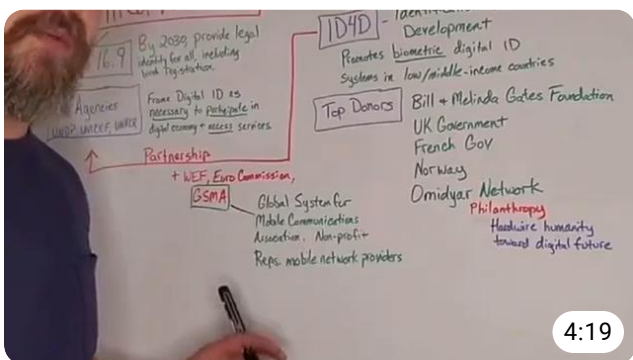 16.9
By 2030, provide legal
identity for all, including
birth registration.
Agencies
UNDP, UNICEF, UNHCR
Frame Digital ID as
necessary to participate in
digital economy + access services
Partnership
+ WEF, Euro Commission,
GSMA
Global System for
Mobile Communications
Association. Non-profit
Reps. mobile network providers
ID4D -
Development
Promotes biometric digital ID
systems in low/middle-income countries
Top Donors
Bill + Melinda Gates Foundation
UK Government
French Gov
Norway
Omidyar Network
Philanthropy
Hardwire humanity
toward digital future
4:19